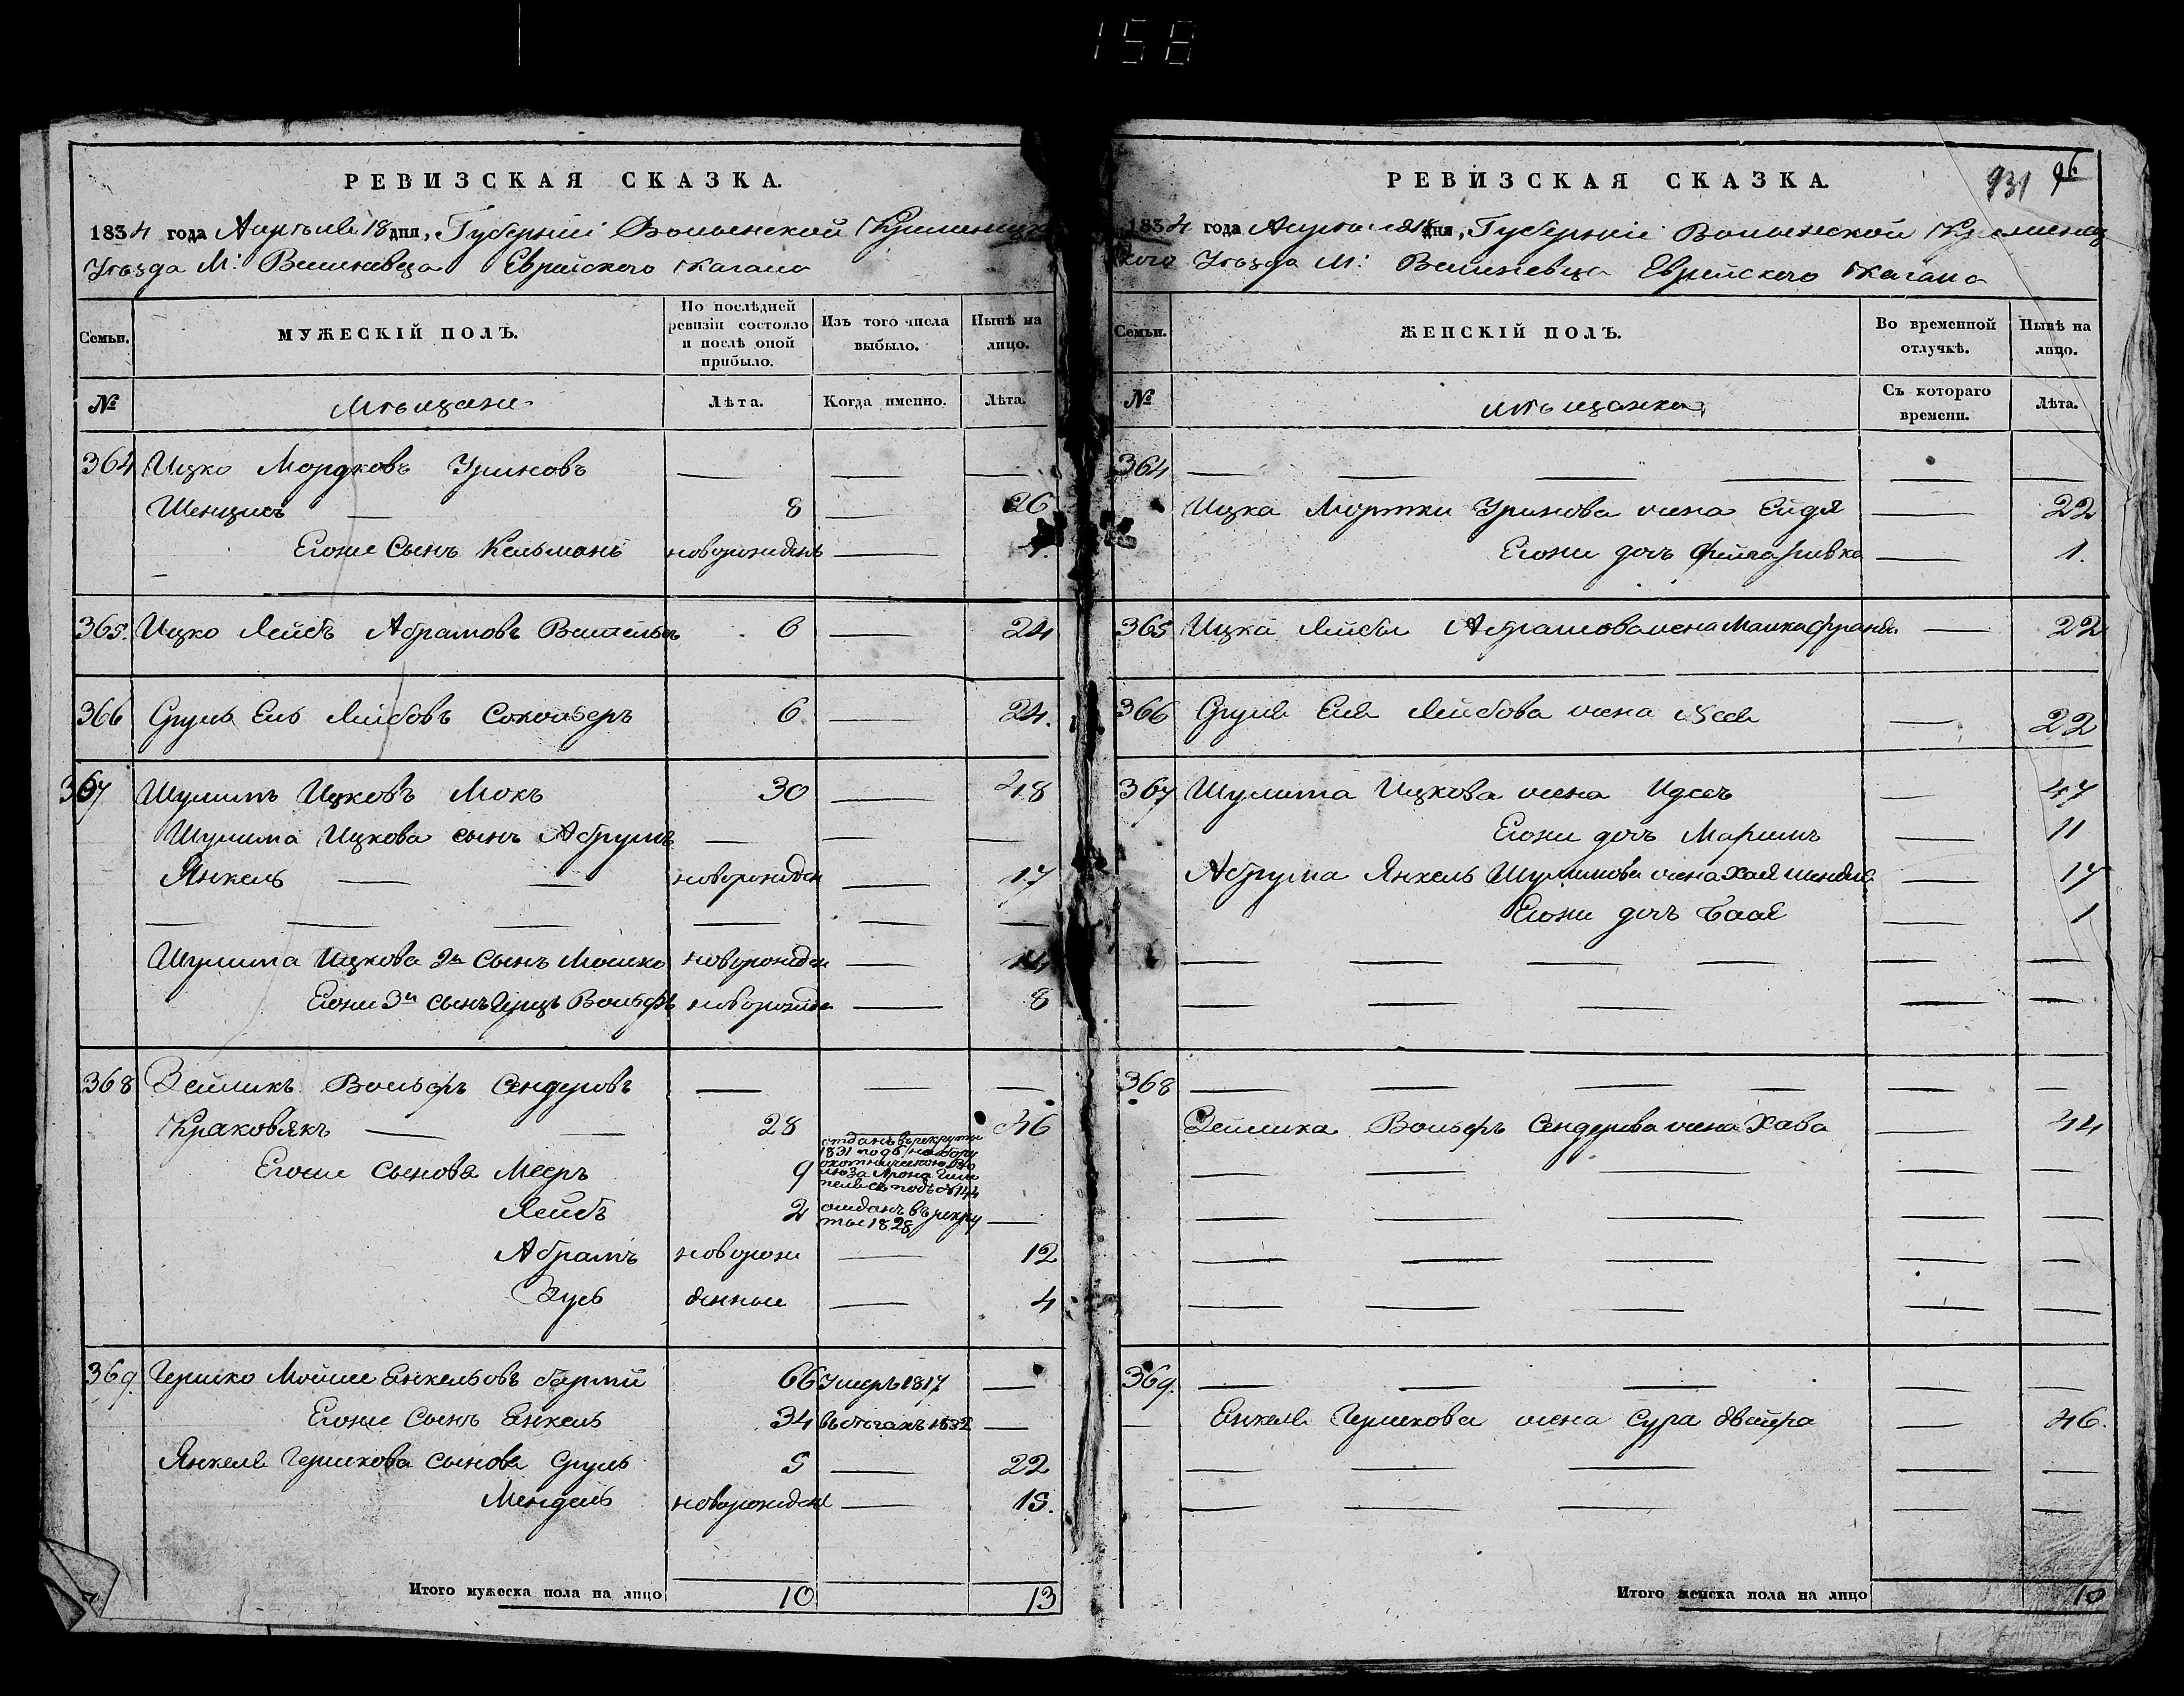 158
РЕВИЗСКАЯ СКАЗКА.
1834 года Апреля 18 дня, Губерніи Волынской Кременецк
Уѣзда М: Вишневца Еврейского Кагала
Семьи.
МУЖЕСКІЙ ПОЛЪ.
По послѣдней ревизіи состояло и послѣ оной прибыло.
Изъ того числа выбыло.
Нынѣ на лицо.
№
Мѣщане
Лѣта.
Когда именно.
Лѣта.
364 Ицко Мордковъ — — —
Шенцисъ — 8 — 26
Егоже Сынъ Кельманъ новорожденъ — 1.
365. Ицко Лейбъ Абрамовъ 6 — 24
366 Сруль Ель Лейбовъ 6 — 24.
367 Шулимъ Ицковъ Мокъ 30 — 48
Шулима Ицкова сынъ Абрумъ — — —
Янкель — — новорожден — 17
— — — — — —
Шулима Ицкова 2й Сынъ Мошко новорожден — 14
Егоже 3й сынъ Герцъ Вольфъ новорожден — 8
368 Зейликъ Вольфъ Сендеровъ — — —
Краковякъ — — 28 46
Егоже сыновя Мееръ 9 отданъ в рекруты
1831 года
Лейбъ 2 отданъ в рекру —
ты 1828
Абрамъ новорож — 12
Зусь денные — 4
369. Гершко Мойше Енкельовъ 66 умеръ 1817 —
Егоже Сынъ Енкель 34 въ бѣгахъ 1832 —
Янкеля Гершкова сыновя Сруль 5 — 22
Мендель новорожден — 15.
Итого мужеска пола на лицо 10 13
РЕВИЗСКАЯ СКАЗКА.
931 96
1834 года Апреля 18 дня, Губерніи Волынской Кременец
кого Уѣзда М: Вишневца Еврейского Кагала
Семьи.
ЖЕНСКІЙ ПОЛЪ.
Во временной отлучкѣ.
Нынѣ на лицо.
№
Мѣщанки
Съ котораго времени.
Лѣта.
364 — — — — — —
Ицка Мортки жена Ейдя — 22
Егоже дочь Фейга Ривка — 1.
365 Ицка Лейбы Абрамова жена — 22
366 Сруля Еля Лейбова жена — 22
367 Шулима Ицкова жена Идесъ — 47
Егоже дочь — 11
Абрума Янкель Шулимова жена Хая — 17
Егоже дочь — 1
— — — — — —
— — — — —
368 — — — — — —
Зейлика Вольфъ Сендерова жена Хава — 44
— — — — —
— — — — —
— — — — —
— — — — —
369. — — — — —
— Енкеля Гершкова жена Сура Двейра — 46.
— — — — —
— — — — —
Итого женска пола на лицо 10